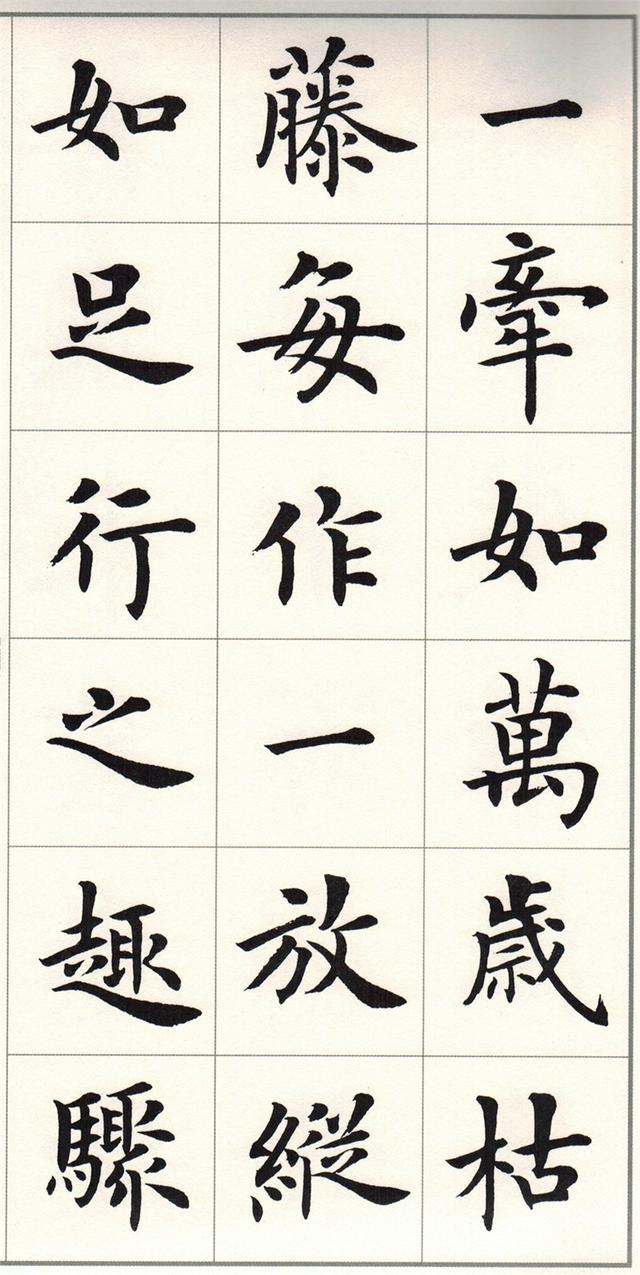 一牽如萬歲枯
藤每作一放縱
如足行之趣驟